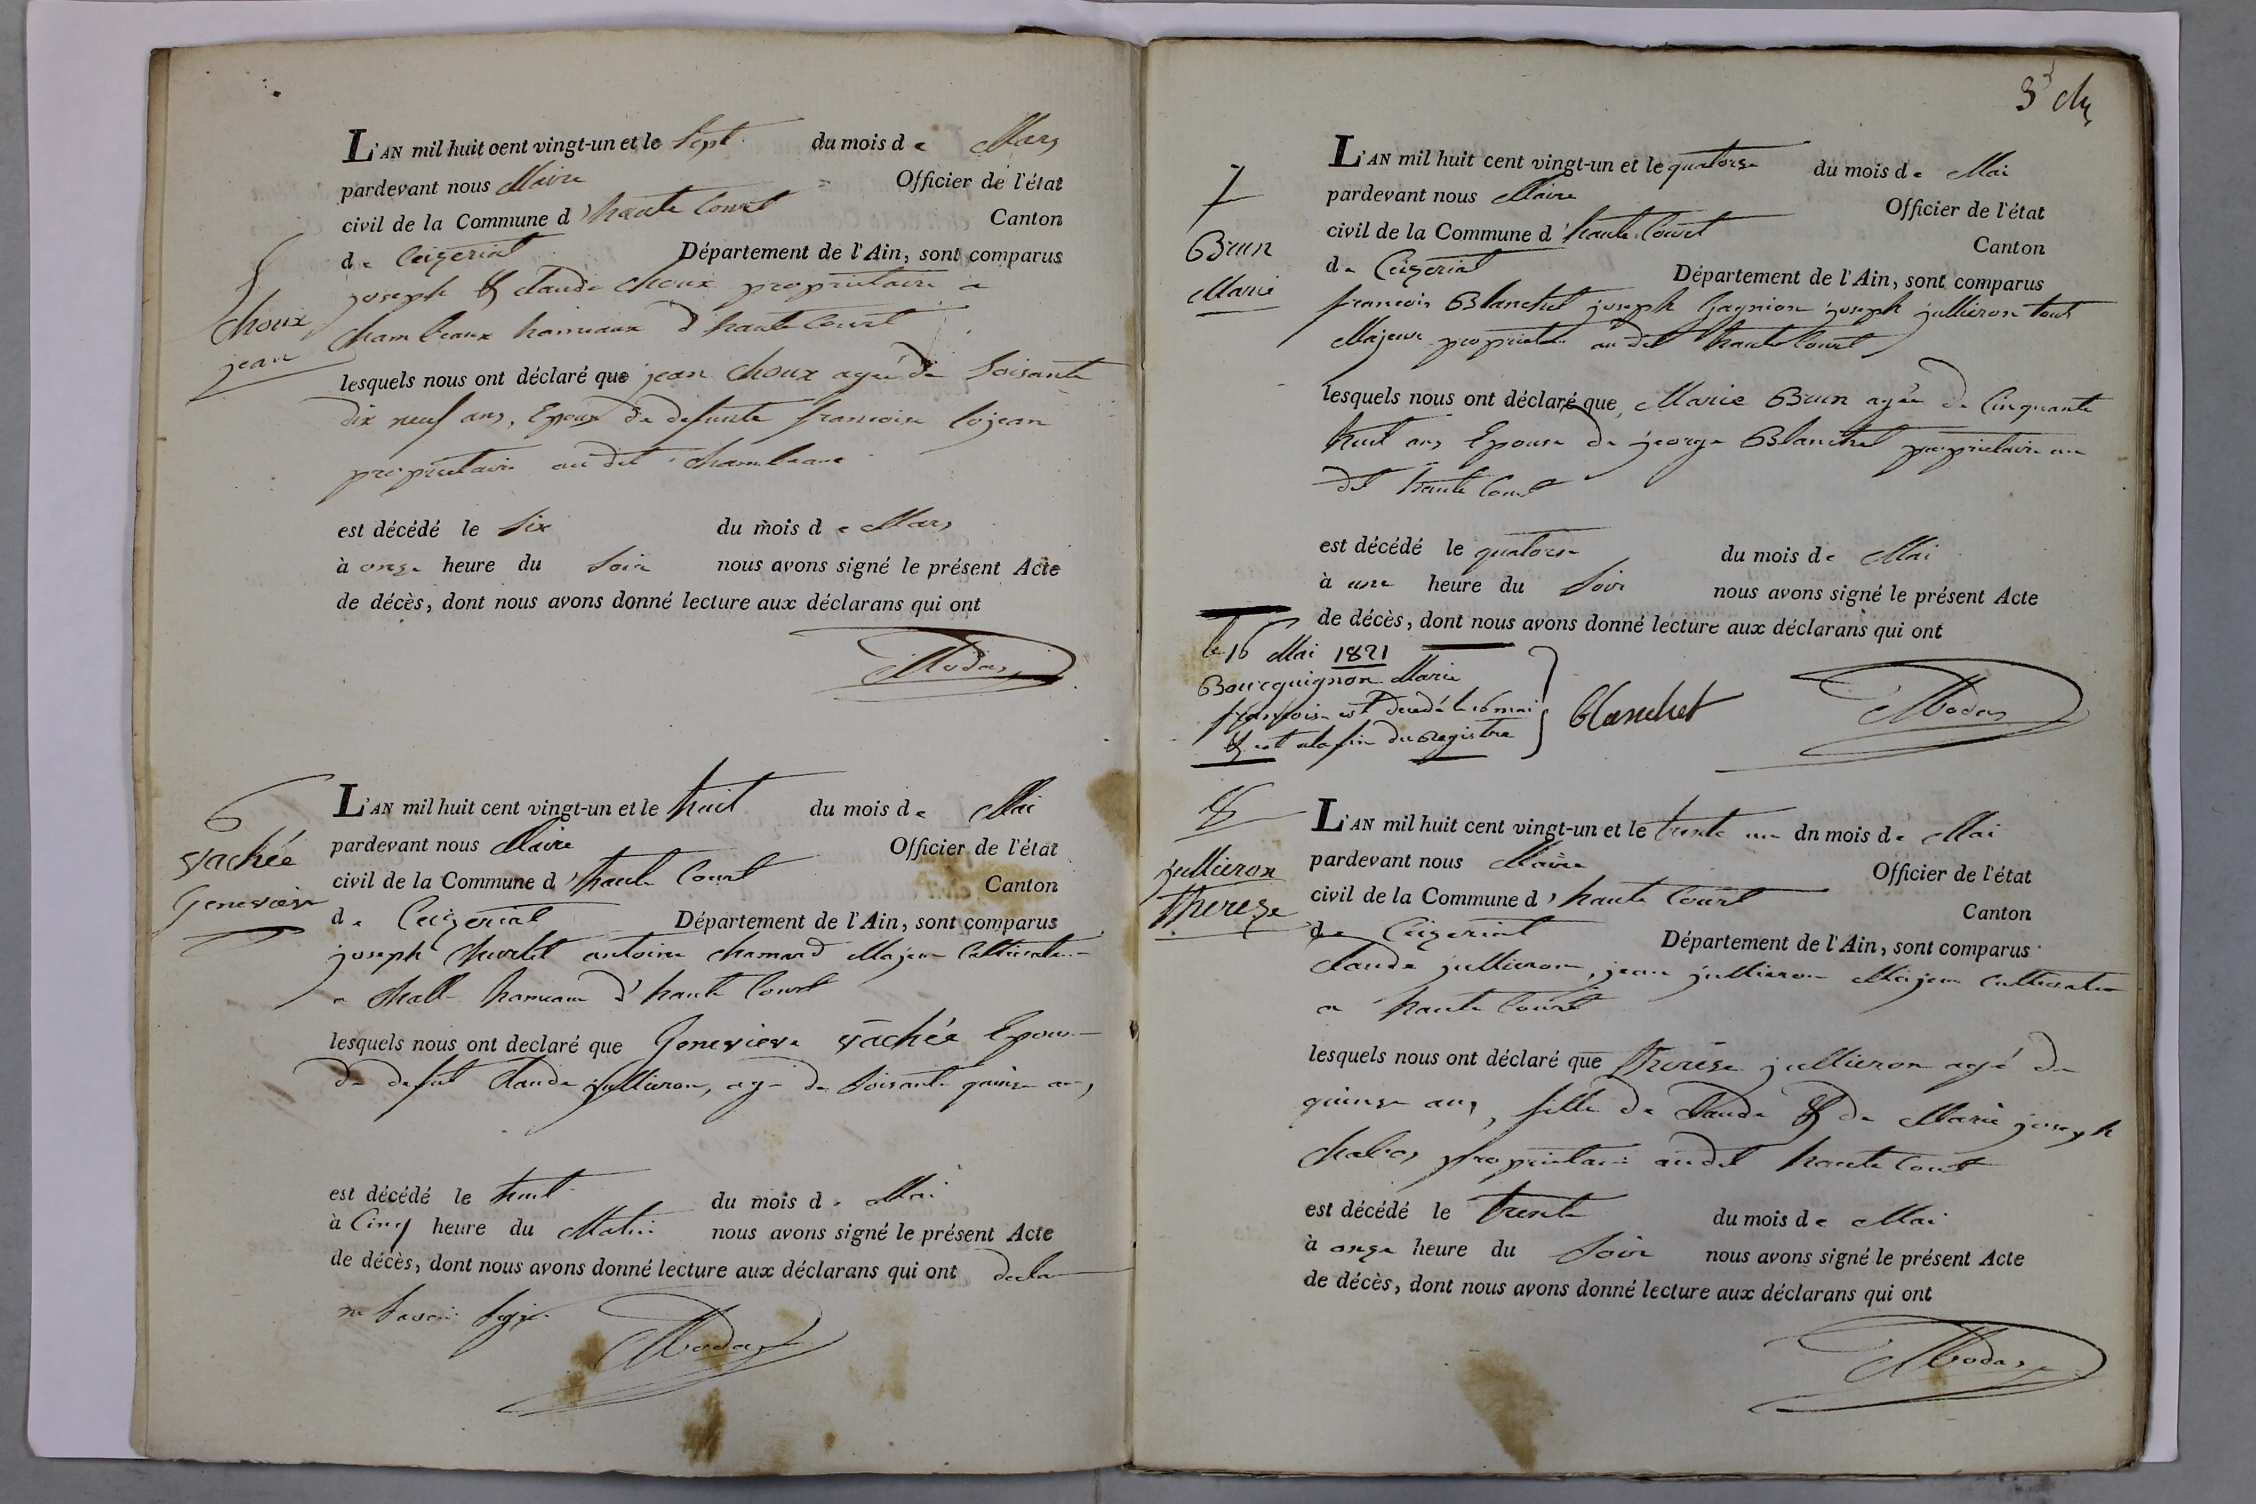 L'AN mil huit cent vingt-un et le Sept du mois de Mars
pardevant nous Maire Officier de l'état
civil de la Commune d'haute Court Canton
de Ceizeriat Département de l'Ain, sont comparus
joseph & claude choux propriétaire a
Chambeaux hameaux d'haute Court
5
choux
jean
lesquels nous ont déclaré que jean choux agé de Soisante
dix neuf ans, Epoux de defunte francoise lojean
propriétaire au dit chambeaux
est décédé le Six du mois de Mars
à onze heure du Soir nous avons signé le présent Acte
de décès, dont nous avons donné lecture aux déclarans qui ont
Modas
6
vachée
Genevieve
L'AN mil huit cent vingt-un et le huit du mois de Mai
pardevant nous Maire Officier de l'état
civil de la Commune d'haute Court Canton
de Ceizeriat Département de l'Ain, sont comparus
joseph antoine chamard Majeur Cultivateur
a Chall hameau d'haute Court
lesquels nous ont declaré que Genevieve vachée Epouse
de defut Claude jullieron, agé de Soisante quinze ans,
est décédé le huit du mois de Mai
à Cinq heure du Matin nous avons signé le présent Acte
de décès, dont nous avons donné lecture aux déclarans qui ont
ne Savoir Signé
Modas
3
7
Brun
Marie
L'AN mil huit cent vingt-un et le quatorze du mois de Mai
pardevant nous Maire Officier de l'état
civil de la Commune d'haute Court Canton
de Ceizeriat Département de l'Ain, sont comparus
francois Blanchet joseph joseph jullieron tous
Majeur propriétaire au dit haute Court
lesquels nous ont déclaré que Marie Brun agée de Cinquante
huit ans Epouse de george Blanchet propriétaire au
dit haute Court
est décédé le quatorze du mois de Mai
à une heure du Soir nous avons signé le présent Acte
de décès, dont nous avons donné lecture aux déclarans qui ont
le 16 Mai 1821
Bourguignon Marie
françoise est decedé le 16 mai
& est a la fin du registre
Blanchet
Modas
8
jullieron
therese
L'AN mil huit cent vingt-un et le trente un dn mois de Mai
pardevant nous Maire Officier de l'état
civil de la Commune d'haute Court Canton
de Ceizeriat Département de l'Ain, sont comparus
claude jullieron, jean jullieron Majeur Cultivateur
a haute Court
lesquels nous ont déclaré que therèse jullieron agé de
quinze ans, fille de Claude & de Marie joseph
chabos propriétaire au dit haute Court
est décédé le trente du mois de Mai
à onze heure du Soir nous avons signé le présent Acte
de décès, dont nous avons donné lecture aux déclarans qui ont
Modas